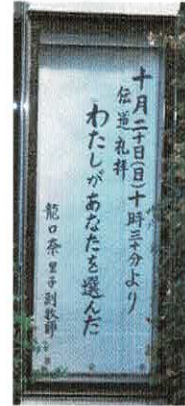 十月二十日(日)十時三十分より
伝道礼拝
わたしがあなたを選んだ
龍口奈里子副牧師